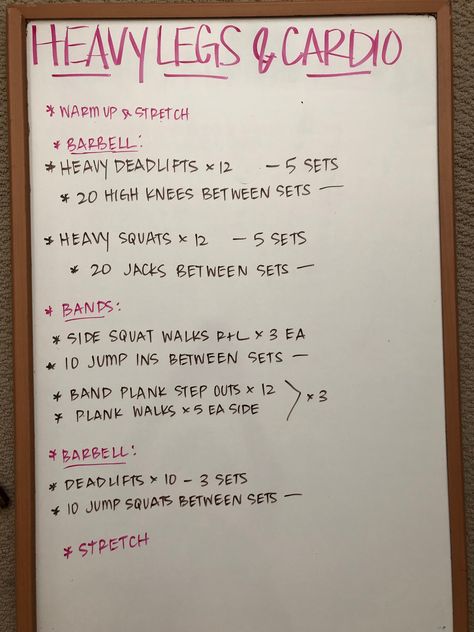 HEAVY LEGS & CARDIO
* WARM UP & STRETCH
* BARBELL:
* HEAVY DEADLIFTS x 12 — 5 SETS
* 20 HIGH KNEES BETWEEN SETS —
* HEAVY SQUATS x 12 — 5 SETS
* 20 JACKS BETWEEN SETS —
* BANDS:
* SIDE SQUAT WALKS R+L x 3 EA
* 10 JUMP INS BETWEEN SETS —
* BAND PLANK STEP OUTS x 12
* PLANK WALKS x 5 EA SIDE > x 3
* BARBELL:
* DEADLIFTS x 10 – 3 SETS
* 10 JUMP SQUATS BETWEEN SETS —
* STRETCH